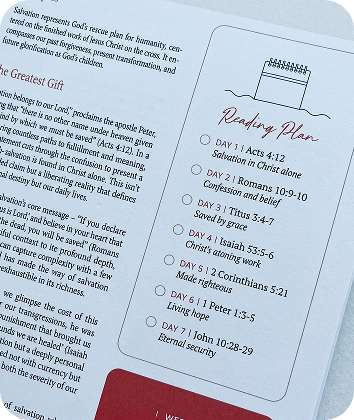 Salvation represents God's rescue plan for humanity, cen-
tered on the finished work of Jesus Christ on the cross. It en-
compasses our past forgiveness, present transformation, and
future glorification as God's children.
he Greatest Gift
ation belongs to our Lord," proclaims the apostle Peter,
ng that "there is no other name under heaven given
ind by which we must be saved" (Acts 4:12). In a
ring countless paths to fulfillment and meaning,
atement cuts through the confusion to present a
h- salvation is found in Christ alone. This isn't
ed claim but a liberating reality that defines
nal destiny but our daily lives.
alvation's core message – "If you declare
us is Lord,' and believe in your heart that
the dead, you will be saved" (Romans
ful context to its profound depth,
can capture complexity with a few
l has made the way of salvation
exhaustible in its richness.
we glimpse the cost of this
r our transgressions, he was
unishment that brought us
unds we are healed" (Isaiah
tion but a deeply personal
ed not with currency but
both the severity of our
of salva
Reading Plan
DAY 1 | Acts 4:12
Salvation in Christ alone
DAY 2 | Romans 10:9-10
Confession and belief
DAY 3 | Titus 3:4-7
Saved by grace
DAY 4 | Isaiah 53:5-6
Christ's atoning work
DAY 5 | 2 Corinthians 5:21
Made righteous
DAY 6 | 1 Peter 1:3-5
Living hope
DAY 7 | John 10:28-29
Eternal security
| WEE